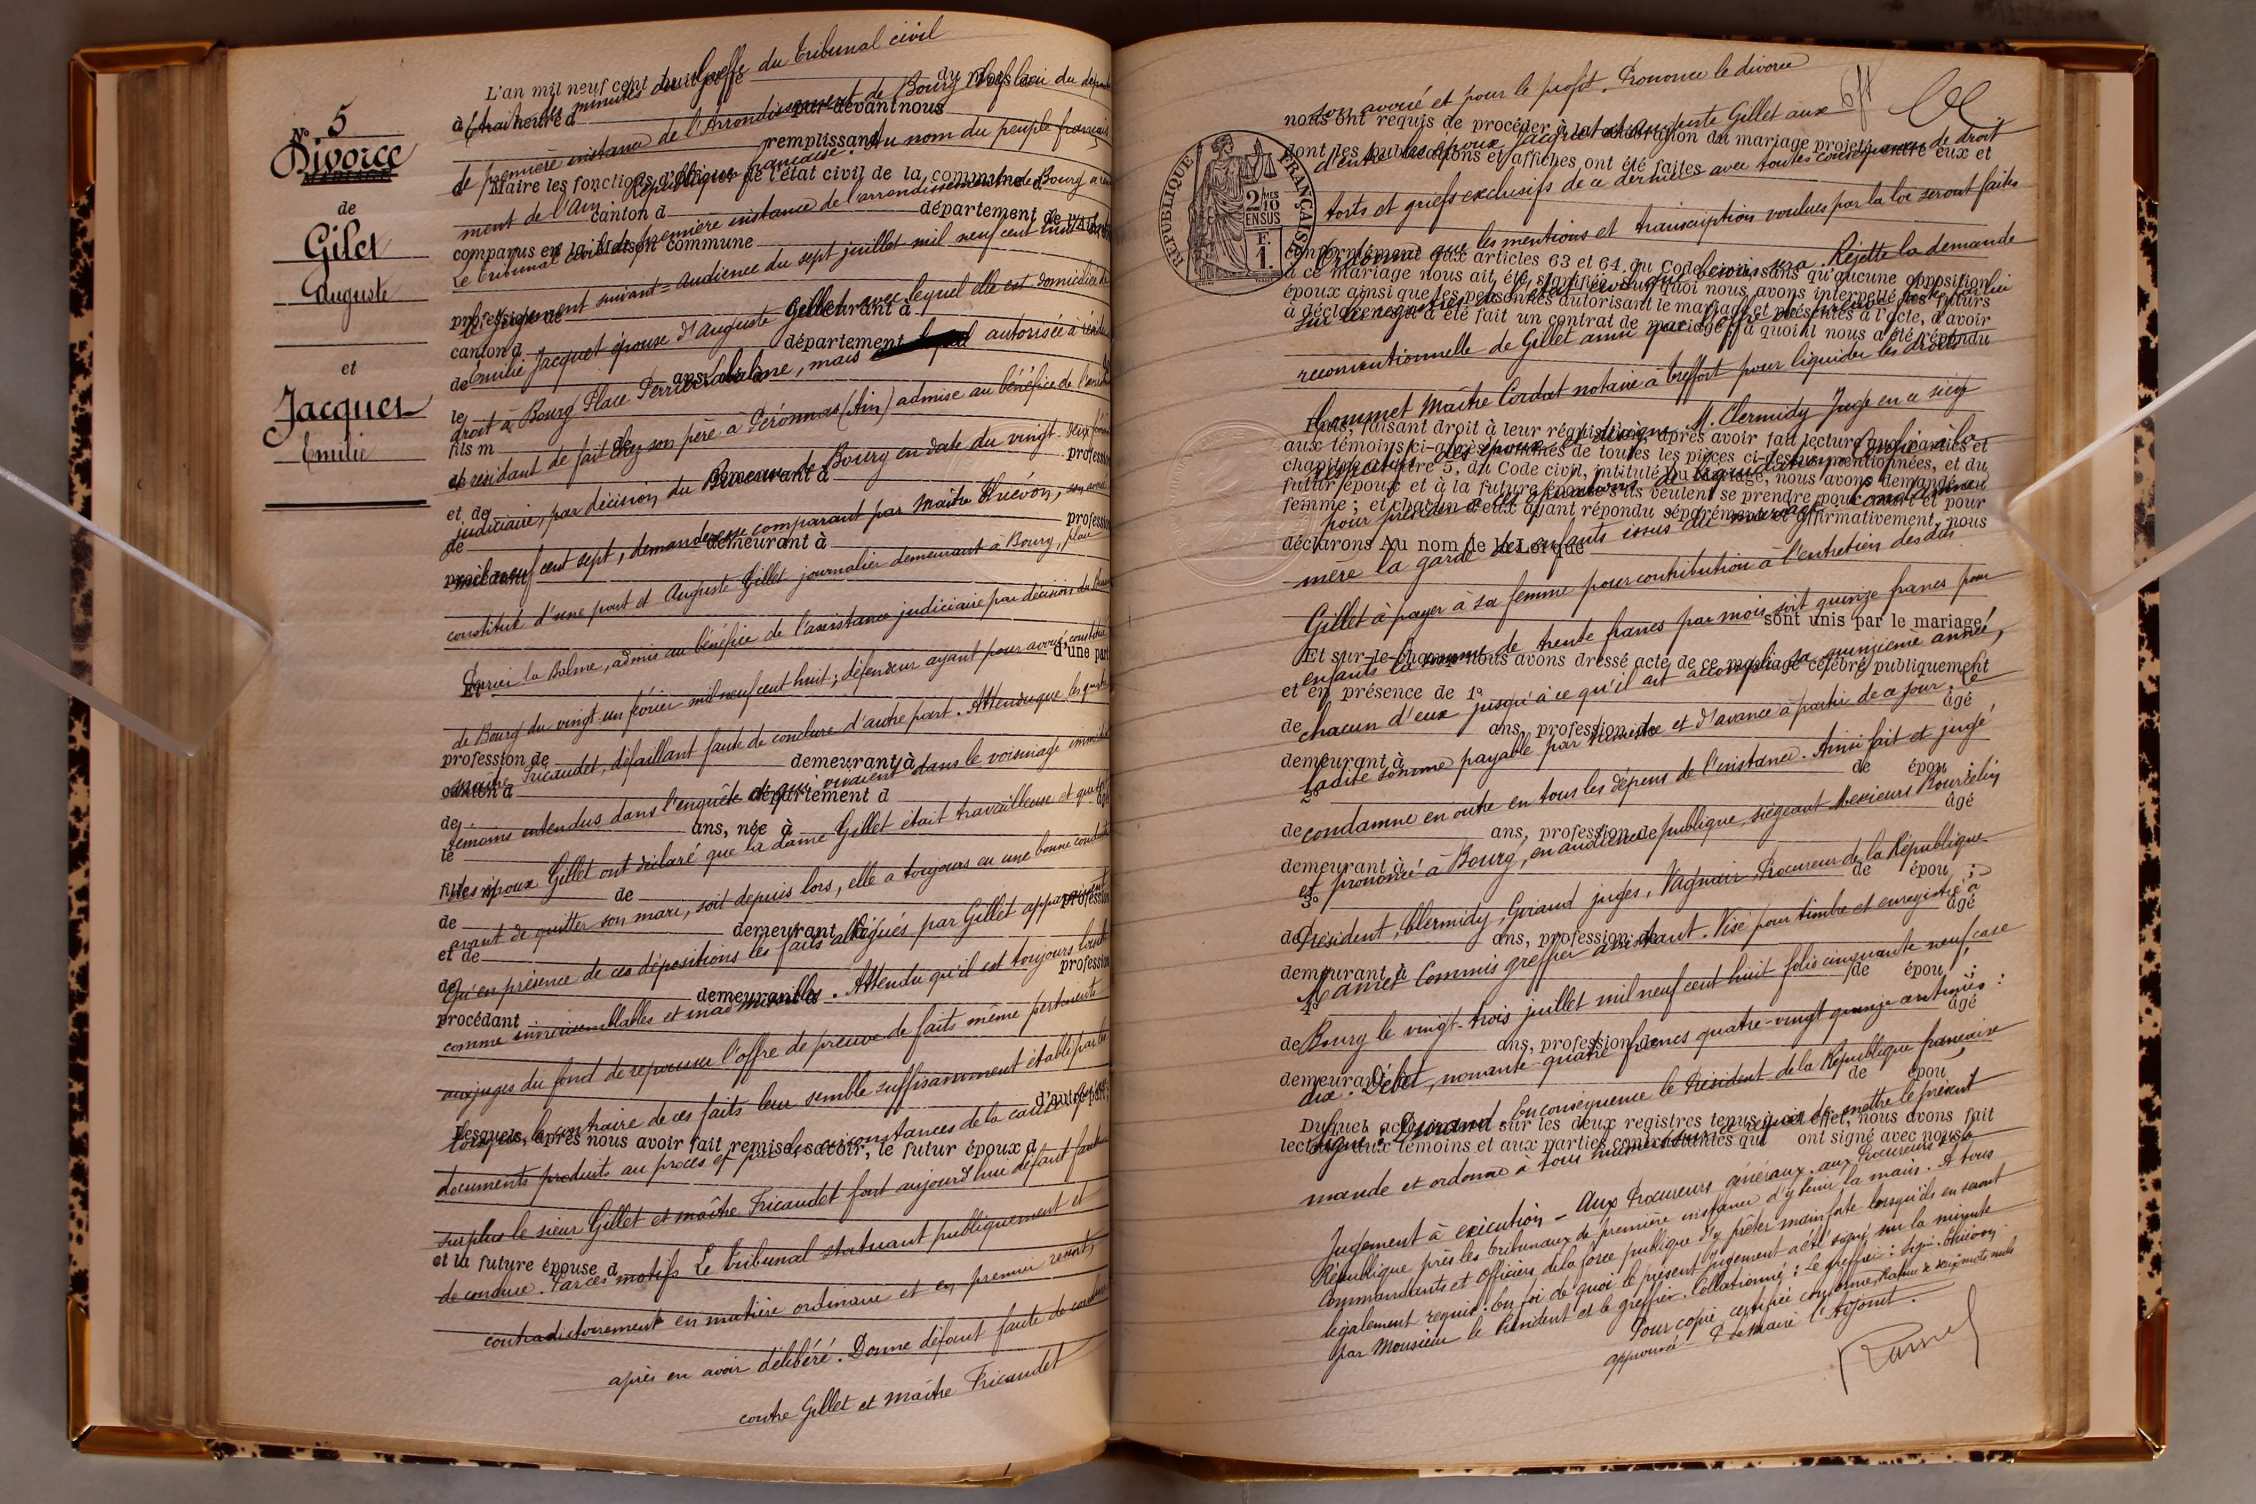 N° 5
Divorce
MARIAGE
de
Gilet
Auguste
et
Jacquet
Emilie
L'an mil neuf cent du mois
Extrait des minutes du Greffe du tribunal civil
à heure d par-devant nous
de première instance de l'Arrondissement de Bourg chef lieu du départe
remplissant
ment de l'Ain République française. Au nom du peuple français
d Maire les fonctions d'officier de l'état civil de la commune d
canton d département de l'Ain
Le tribunal civil de première instance de l'arrondissement de Bourg a
comparus en la maison commune
le jugement suivant = audience du sept juillet mil neuf cent huit
profession de demeurant à
canton d département d
Emilie Jacquet épouse d'Auguste Gillet avec lequel elle est domiciliée de
de ans, né à
droit à Bourg Place Perrier Labalme, mais autorisée à résider
le
fils m de
et résidant de fait chez son père à Péronnas (Ain) admise au bénéfice de l'assistance
profession
et de demeurant à
judiciaire, par décision du Bureau de Bourg en date du vingt-deux février
de profession
demeurant à
mil neuf cent sept, demanderesse comparant par Maître Chiévon, son avoué
procédant
constitué d'une part et Auguste Gillet journalier demeurant à Bourg, place
Perrier la Balme, admis au bénéfice de l'assistance judiciaire par décision du Bureau
Et d'une part
de Bourg du vingt-un février mil neuf cent huit; défendeur ayant pour avoué constitué
profession de demeurant à
maître Fricaudet, défaillant faute de conclure d'autre part. Attendu que les quatre
canton d département d
témoins entendus dans l'enquête et qui vivaient dans le voisinage immédiat
de ans, née à
le
des époux Gillet ont déclaré que la dame Gillet était travailleuse et que soit
fille m de
avant de quitter son mari, soit depuis lors, elle a toujours eu une bonne conduite
de demeurant à profession
et de
Qu'en présence de ces dépositions les faits allégués par Gillet apparaissent
de demeurant à profession
procédant
comme invraisemblables et inadmissibles. Attendu qu'il est toujours loisible
aux juges du fond de repousser l'offre de preuve de faits même pertinents
d'autre part;
lorsque le contraire de ces faits leur semble suffisamment établi par les
Lesquels, après nous avoir fait remise, savoir, le futur époux d
documents produits au procès et par les circonstances de la cause. Qu'au
surplus le sieur Gillet et maître Fricaudet font aujourd'hui défaut faute
et la future épouse d
de conclure. Par ces motifs Le tribunal statuant publiquement et
contradictoirement en matière ordinaire et en premier ressort,
après en avoir délibéré. Donne défaut faute de conclure
contre Gillet et maître Fricaudet
RÉPUBLIQUE FRANÇAISE
2 10MES
EN SUS
F.
1.
son avoué et pour le profit. Prononce le divorce
nous ont requis de procéder à la célébration du mariage projeté entre eux et
d'entre les époux Jacquet et Auguste Gillet aux
dont les publications et affiches ont été faites
torts et griefs exclusifs de ce dernier avec toutes conséquences de droit
Ordonne que les mentions et transcriptions voulues par la loi seront faites
conformément aux articles 63 et 64 du Code civil, sans qu'aucune opposition
à ce mariage nous ait été signifiée. Sur quoi nous avons interpellé les futurs
époux ainsi que les personnes autorisant le mariage et présentes à l'acte, d'avoir
à déclarer s'il a été fait un contrat de mariage, à quoi il nous a été répondu
sur les registres de l'état civil où besoin sera. Rejette la demande
reconventionnelle de Gillet ainsi que l'offre de preuve faite par lui
Commet Maître Cordat notaire à Treffort pour liquider les droits
Nous, faisant droit à leur réquisition, après avoir fait lecture aux parties et
aux témoins ci-après nommés de toutes les pièces ci-dessus mentionnées, et du
chapitre 6, titre 5, du Code civil, intitulé Du Mariage, nous avons demandé au
futur époux et à la future épouse s'ils veulent se prendre pour mari et pour
femme; et chacun d'eux ayant répondu séparément et affirmativement, nous
déclarons Au nom de la Loi que
respectifs des époux et désigne M. Clermidy Juge en ce siège
pour présider à ces opérations de liquidation. Confie à la
mère la garde des enfants issus du mariage. Condamne
Gillet à payer à sa femme pour contribution à l'entretien des dits
sont unis par le mariage.
enfants la somme de trente francs par mois soit quinze francs pour
Et sur-le-champ nous avons dressé acte de ce mariage célébré publiquement
et en présence de 1°
chacun d'eux jusqu'à ce qu'il ait accompli sa quinzième année,
de ans, profession de âgé
demeurant à de épou ;
ladite somme payable par trimestre et d'avance à partir de ce jour. Le
2° âgé
condamne en outre en tous les dépens de l'instance. Ainsi fait et jugé
de ans, profession de
demeurant à de épou ;
et prononcé à Bourg, en audience publique, siégeant Messieurs Bourdelin
3° âgé
Président, Clermidy, Giraud juges, Vagnair Procureur de la République
de ans, profession de
demeurant à de épou ;
Mamet Commis greffier assistant. Visé pour timbre et enregistré à
4° âgé
Bourg le vingt-trois juillet mil neuf cent huit folio cinquante neuf, case
de ans, profession de
demeurant à de épou
dix. Débet, nonante-quatre francs quatre-vingt quinze centimes:
Duquel acte, inscrit sur les deux registres tenus à cet effet, nous avons fait
lecture aux témoins et aux parties contractantes qui ont signé avec nous.
signé: Durand. En conséquence le Président de la République française
mande et ordonne à tous huissiers sur ce requis de mettre le présent
Jugement à exécution - Aux Procureurs généraux, aux Procureurs de la
République près les tribunaux de première instance d'y tenir la main. A tous
Commandants et Officiers de la force publique d'y prêter main forte lorsqu'ils en seront
légalement requis. En foi de quoi le présent jugement a été signé sur la minute
par Monsieur le Président et le greffier. Collationné: Le greffier: Signé:
Pour copie certifiée conforme, Rature de deux mots nuls
approuvé P. le Maire l'Adjoint.